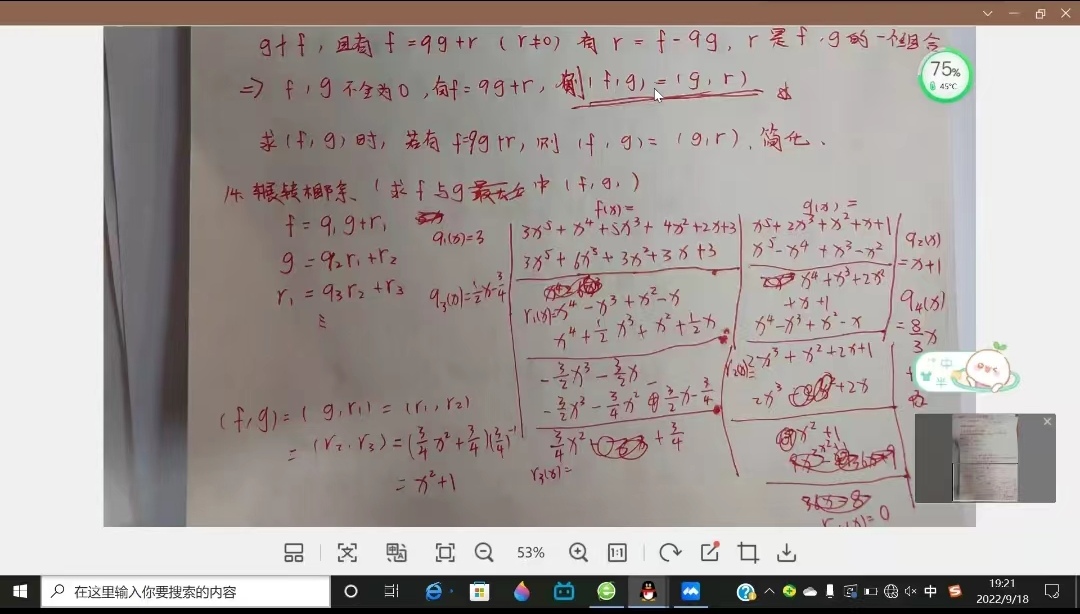 g∤f，且有 f=qg+r (r≠0) 有 r=f-qg，r是f、g的一个组合
⇒ f，g不全为0，有f=qg+r，有(f,g)=(g,r)
求(f,g)时，若有f=qg+r，则(f,g)=(g,r)、简化、
14. 辗转相除、(求f与g 中(f,g))
f=q₁g+r₁
g=q₂r₁+r₂
r₁=q₃r₂+r₃
q₁(x)=3
q₃(x)=½x-¾
f(x)=
3x⁵+x⁴+5x³+4x²+2x+3
3x⁵+6x³+3x²+3x+3
r₁(x)=x⁴-x³+x²-x
x⁴+½x³+x²+½x
-3/2x³-3/2x
-3/2x³-¾x²-3/2x-¾
¾x²+¾
r₃(x)=
g(x)=
x⁵+2x³+x²+x+1
x⁵-x⁴+x³-x²
x⁴+x³+2x²
+x+1
x⁴-x³+x²-x
r₂(x)=2x³+x²+2x+1
2x³+2x
x²+1
x²+1
r₄(x)=0
q₂(x)
=x+1
q₄(x)
=8/3x
+
(f,g)=(g,r₁)=(r₁,r₂)
=(r₂,r₃)=(¾x²+¾)(¾)⁻¹
=x²+1
75%
45℃
中
半
53%
1:1
在这里输入你要搜索的内容
中
19:21
2022/9/18